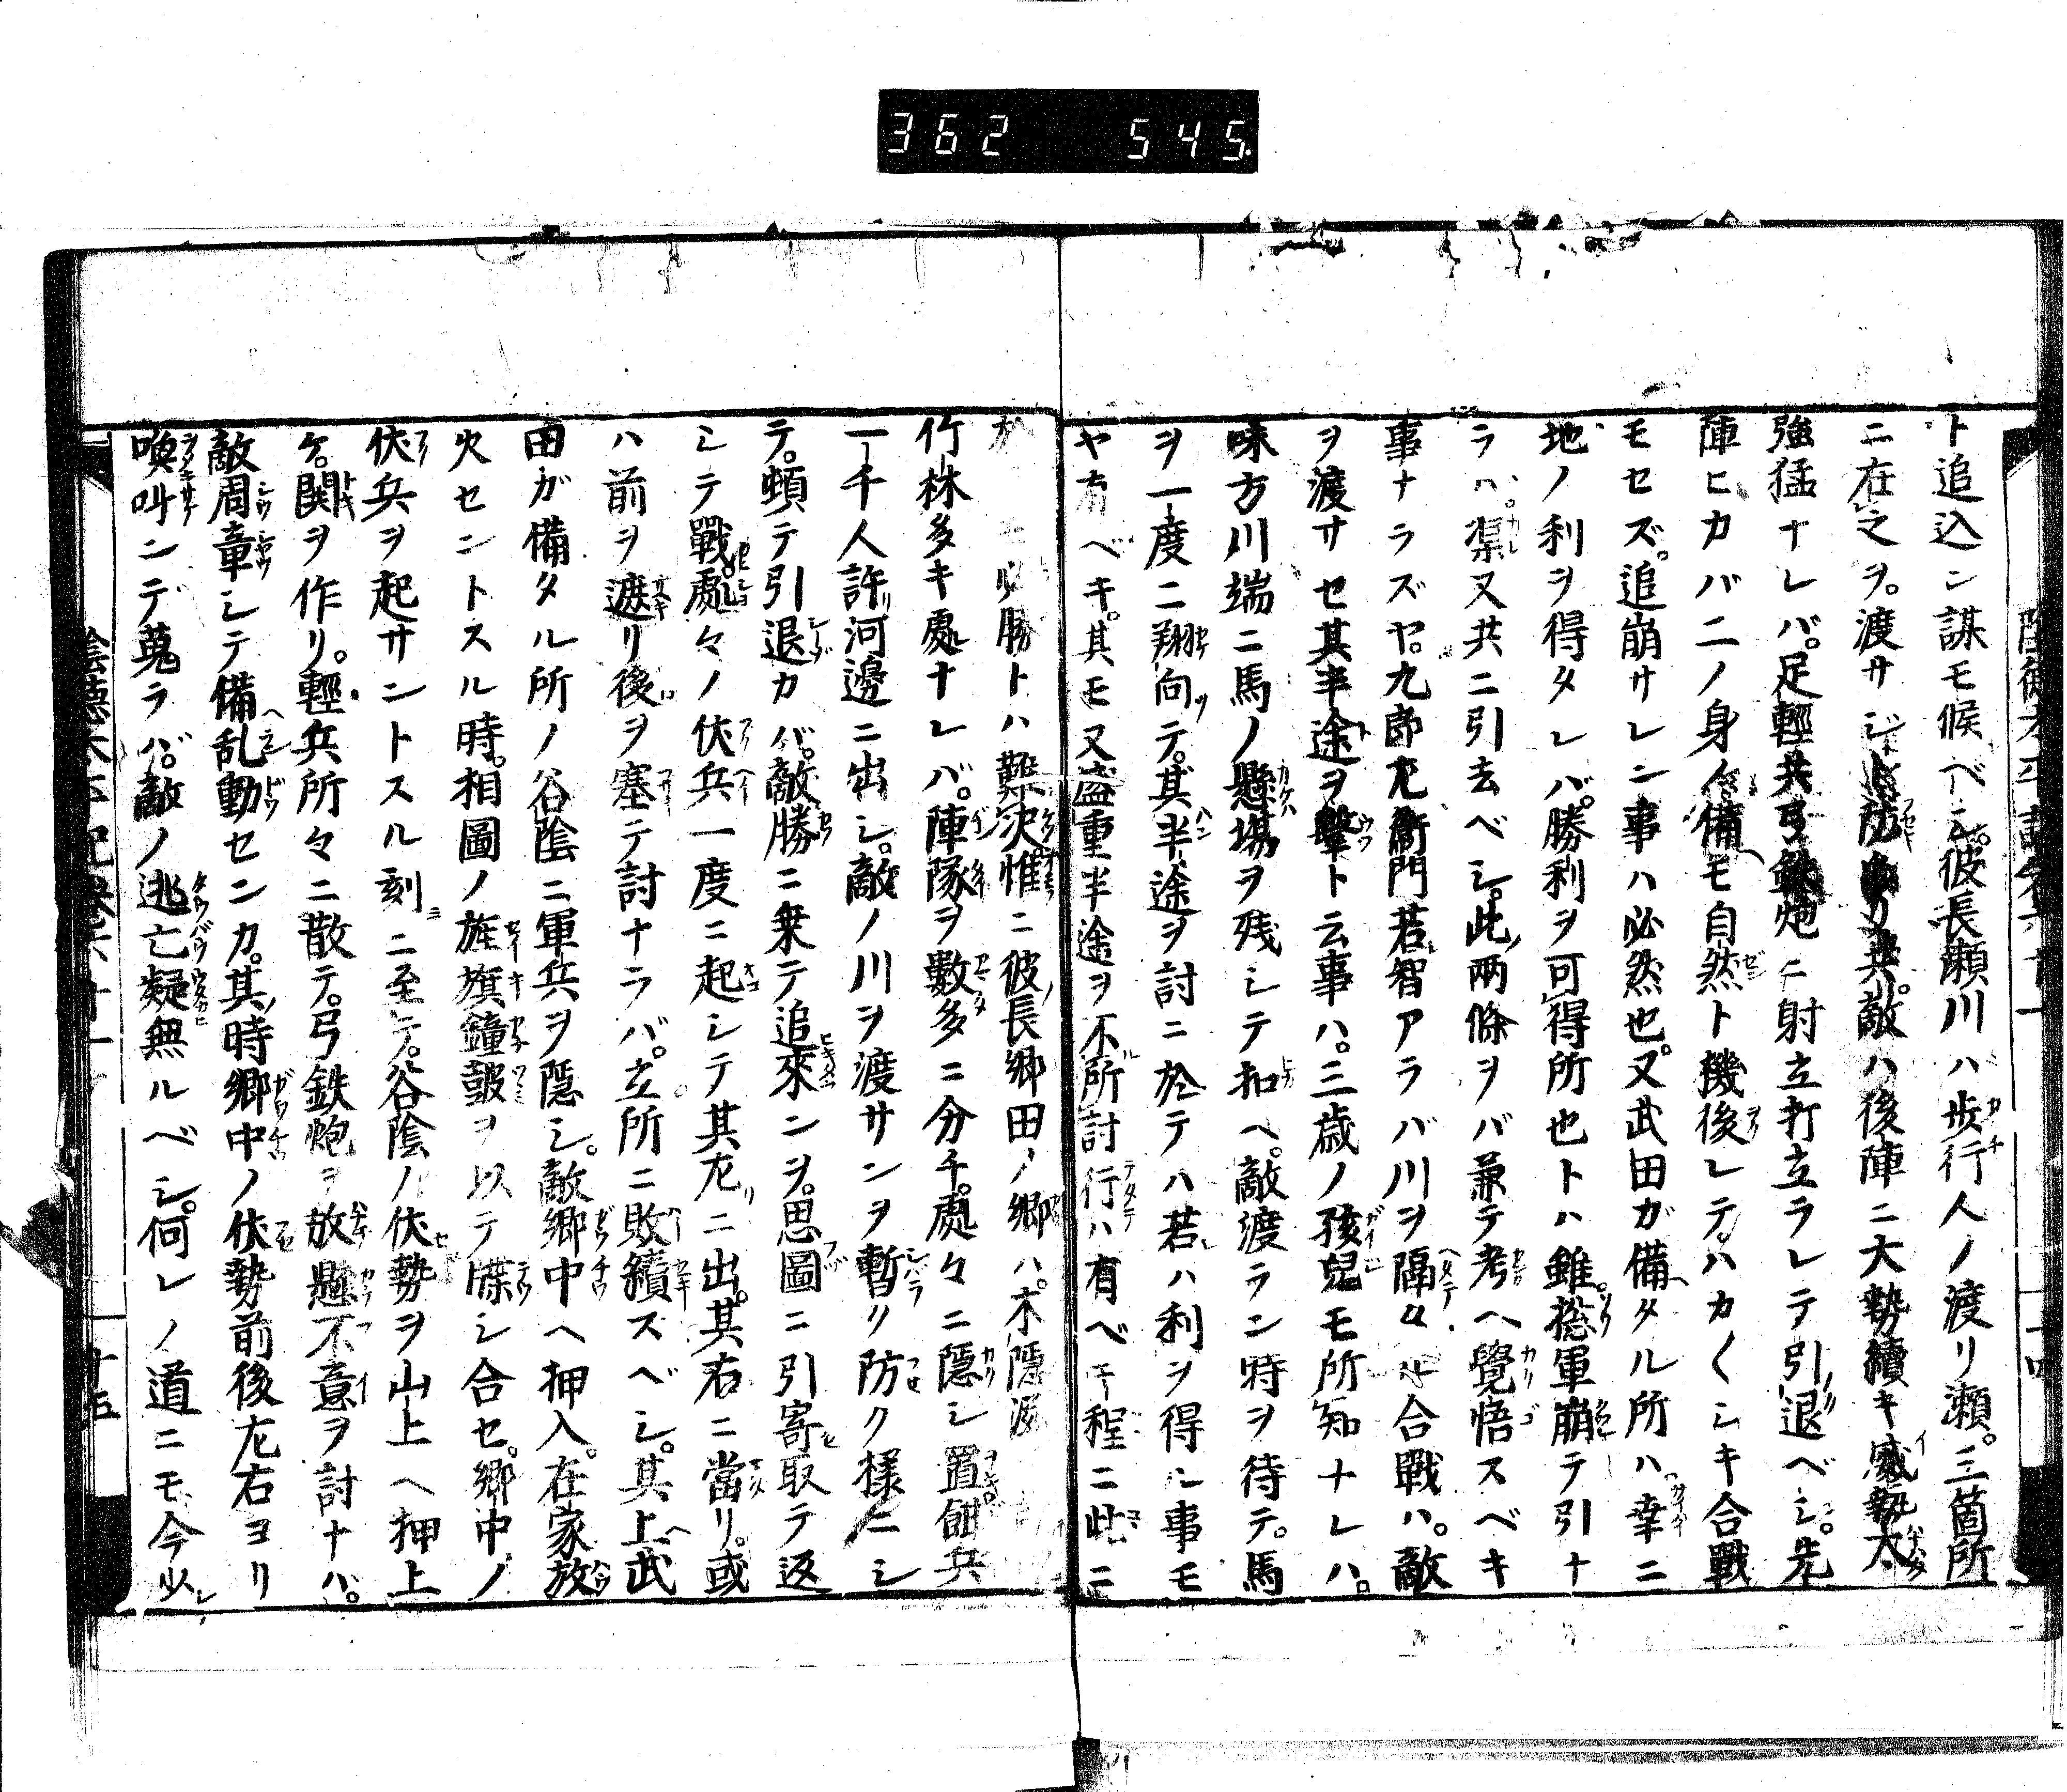 362 545.
ト追込ン謀モ候ベシ。彼長瀬川ハ歩行人ノ渡リ瀬。三箇所
ニ在之ヲ。渡サジト防共。敵ハ後陣ニ大勢續キ威勢太
強猛ナレバ。足輕共弓鉄炮ニ射立打立ラレテ引退ベシ。先
陣ヒカバ二ノ身ノ備モ自然ト機後レテ。ハカ〱シキ合戰
モセズ。追崩サレン事ハ必然也。又武田ガ備タル所ハ幸ニ
地ノ利ヲ得タレバ。勝利ヲ可得所也トハ雖。捴軍崩テ引ナ
ラバ。渠又共ニ引去ベシ。此兩條ヲバ兼テ考ヘ覺悟スベキ
事ナラズヤ。九郎左衛門若智アラバ川ヲ隔タル合戰ハ。敵
ヲ渡サセ其半途ヲ擊ト云事ハ。三歳ノ孩兒モ所知ナレハ。
味方川端ニ馬ノ懸塲ヲ残シテ扣ヘ。敵渡ラン時ヲ待テ。馬
ヲ一度ニ翔向テ。其半途ヲ討ニ於テハ若ハ利ヲ得シ事モ
ヤ有ベキ。其モ又盛重半途ヲ不所討行ハ有ベキ程ニ此ニ
於 必勝トハ難决惟ニ彼長郷田ノ郷ハ。木隠
竹林多キ處ナレバ。陣隊ヲ數多ニ分チ。處々ニ隠シ置餌兵
一千人許河邊ニ出シ。敵ノ川ヲ渡サンヲ暫ク防ク様ニシ
テ。頓テ引退カバ。敵勝ニ乗テ追來ンヲ。思圖ニ引寄取テ返
シテ戰。處々ノ伏兵一度ニ起シテ其左ニ出。其右ニ當リ。或
ハ前ヲ遮リ後ヲ塞テ討ナラバ。立所ニ敗績スベシ。其上武
田ガ備タル所ノ谷陰ニ軍兵ヲ隠シ。敵郷中ヘ押入。在家放
火セントスル時。相圖ノ旌旗鐘鼓ヲ以テ牒シ合セ。郷中ノ
伏兵ヲ起サントスル刻ニ至テ。谷陰ノ伏勢ヲ山上ヘ押上
ケ。関ヲ作リ。輕兵所々ニ散テ。弓鉄炮ヲ放懸不意ヲ討ナハ。
敵周章シテ備乱動センカ。其時郷中ノ伏勢前後左右ヨリ
喚叫ンデ蒐ラバ。敵ノ逃亡疑無ルベシ。何レノ道ニモ今少